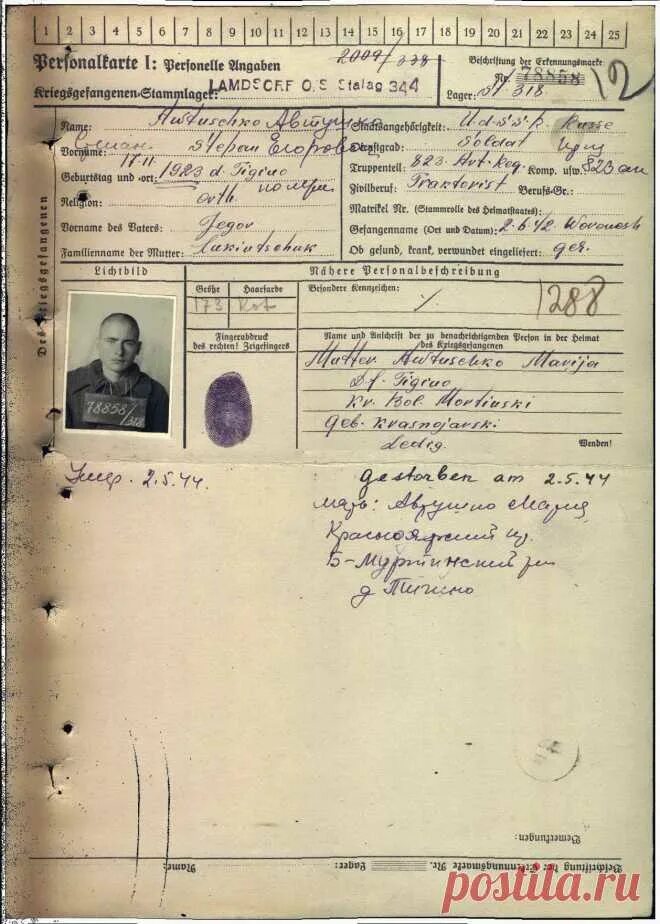 1 2 3 4 5 6 7 8 9 10 11 12 13 14 15 16 17 18 19 20 21 22 23 24 25
Personalkarte I: Personelle Angaben
2009/338
Beschriftung der Erkennungsmarke
Nr. 78858
Kriegsgefangenen-Stammlager:
LAMSDORF O.S Stalag 344
Lager: 318
Des Kriegsgefangenen
Name: Awtuschko Автушко
Staatsangehörigkeit: U.d.S.S.R. Russe
Vorname: Stepan Егорович
Dienstgrad: Soldat
17.11.
Truppenteil: 823 Art. Reg. Komp. usw. 823 ап
Geburtstag und -ort: 1923 d. Tigino
Zivilberuf: Traktorist Berufs-Gr.:
Religion: orth
Matrikel Nr. (Stammrolle des Heimatstaates):
Vorname des Vaters: Jegor
Gefangennahme (Ort und Datum): 2.6.42 Woronesh
Familienname der Mutter: Lukiutschuk
Ob gesund, krank, verwundet eingeliefert: ges.
Lichtbild
Nähere Personalbeschreibung
Größe Haarfarbe
Besondere Kennzeichen:
173 Rot
1288
Fingerabdruck
des rechten! Zeigefingers
Name und Anschrift der zu benachrichtigenden Person in der Heimat
des Kriegsgefangenen
Mutter Awtuschko Marija
Df. Tigino
Kr. Bol. Mortinski
Geb. Krasnojarski
Ledig.
78858/318
Wenden!
Умер. 2.5.44.
gestorben am 2.5.44
мать: Автушко Мария
Красноярский
Б-Муртинский
д Тигино
Bemerkungen:
Name:
Beschriftung der Erkennungsmarke Nr.
Lager:
postila.ru